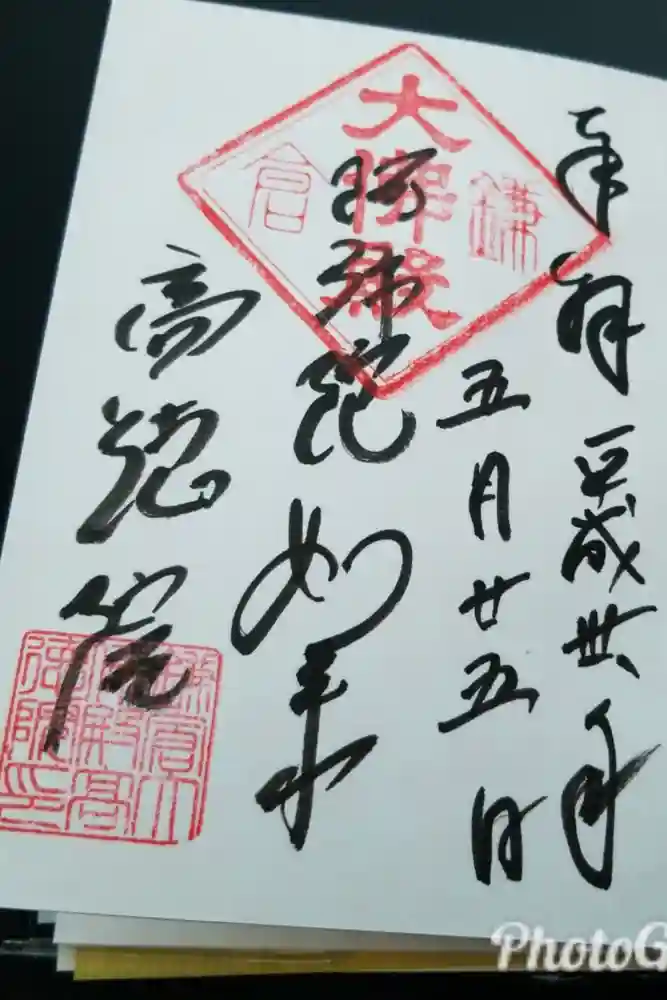 奉拝 平成卅年
五月廿五日
大佛殿
鎌倉
阿弥陀如来
高徳院
鎌倉大佛殿高徳院印
PhotoG